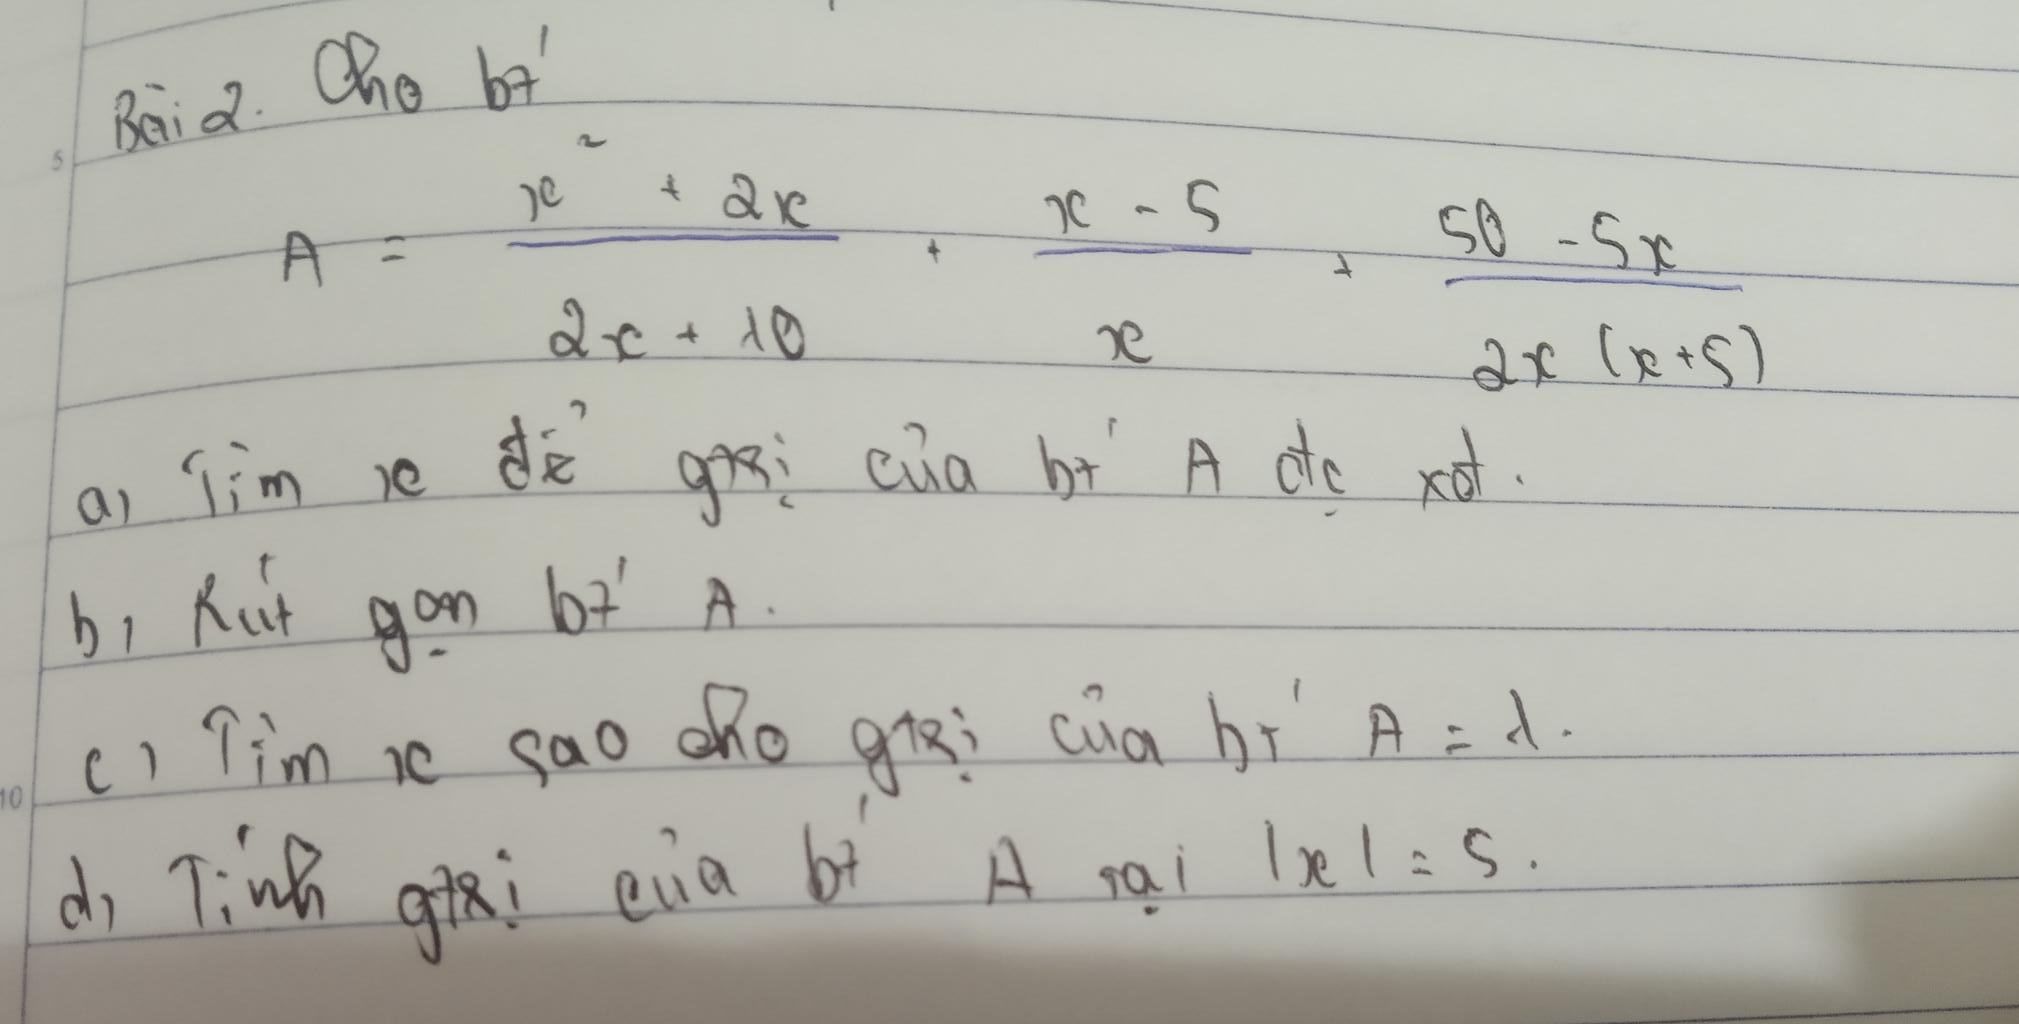 Bài 2. Cho bt'
A = \frac{x² + 2x}{2x + 10} + \frac{x - 5}{x} + \frac{50 - 5x}{2x (x+5)}
a, Tìm x để gtrị của bt' A đc xđ.
b, Rút gọn bt' A.
c, Tìm x sao cho gtrị của bt' A = 1.
d, Tính gtrị của bt' A tại |x| = 5.
5
10